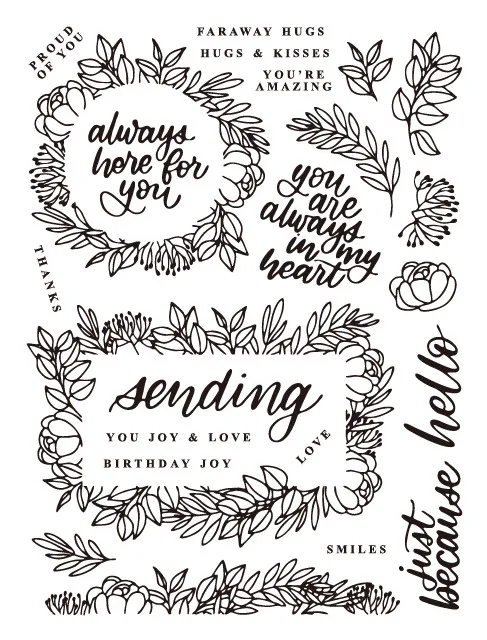 PROUD
OF YOU
FARAWAY HUGS
HUGS & KISSES
YOU'RE
AMAZING
always
here for
you
you
are
always
in my
heart
THANKS
sending
YOU JOY & LOVE
BIRTHDAY JOY
LOVE
hello
just
because
SMILES